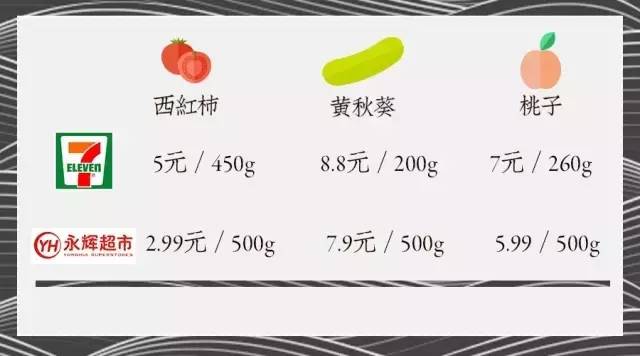 西紅柿 黄秋葵 桃子
7 ELEVEN 5元 / 450g 8.8元 / 200g 7元 / 260g
YH 永辉超市 2.99元 / 500g 7.9元 / 500g 5.99 / 500g
YONGHUI SUPERSTORES